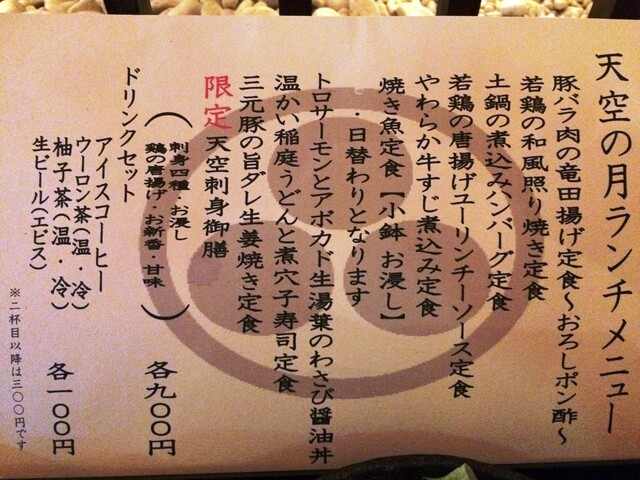 天空の月ランチメニュー
豚バラ肉の竜田揚げ定食～おろしポン酢～
若鶏の和風照り焼き定食
土鍋の煮込みハンバーグ定食
若鶏の唐揚げユーリンチーソース定食
やわらか牛すじ煮込み定食
焼き魚定食【小鉢 お浸し】
・日替わりとなります
トロサーモンとアボカド生湯葉のわさび醤油丼
温かい稲庭うどんと煮穴子寿司定食
三元豚の旨ダレ生姜焼き定食
限定 天空刺身御膳
（刺身四種 お浸し
鶏の唐揚げ・お新香・甘味）
各九〇〇円
ドリンクセット
アイスコーヒー
ウーロン茶（温・冷）
柚子茶（温・冷）
生ビール（エビス）
各一〇〇円
※二杯目以降は三〇〇円です